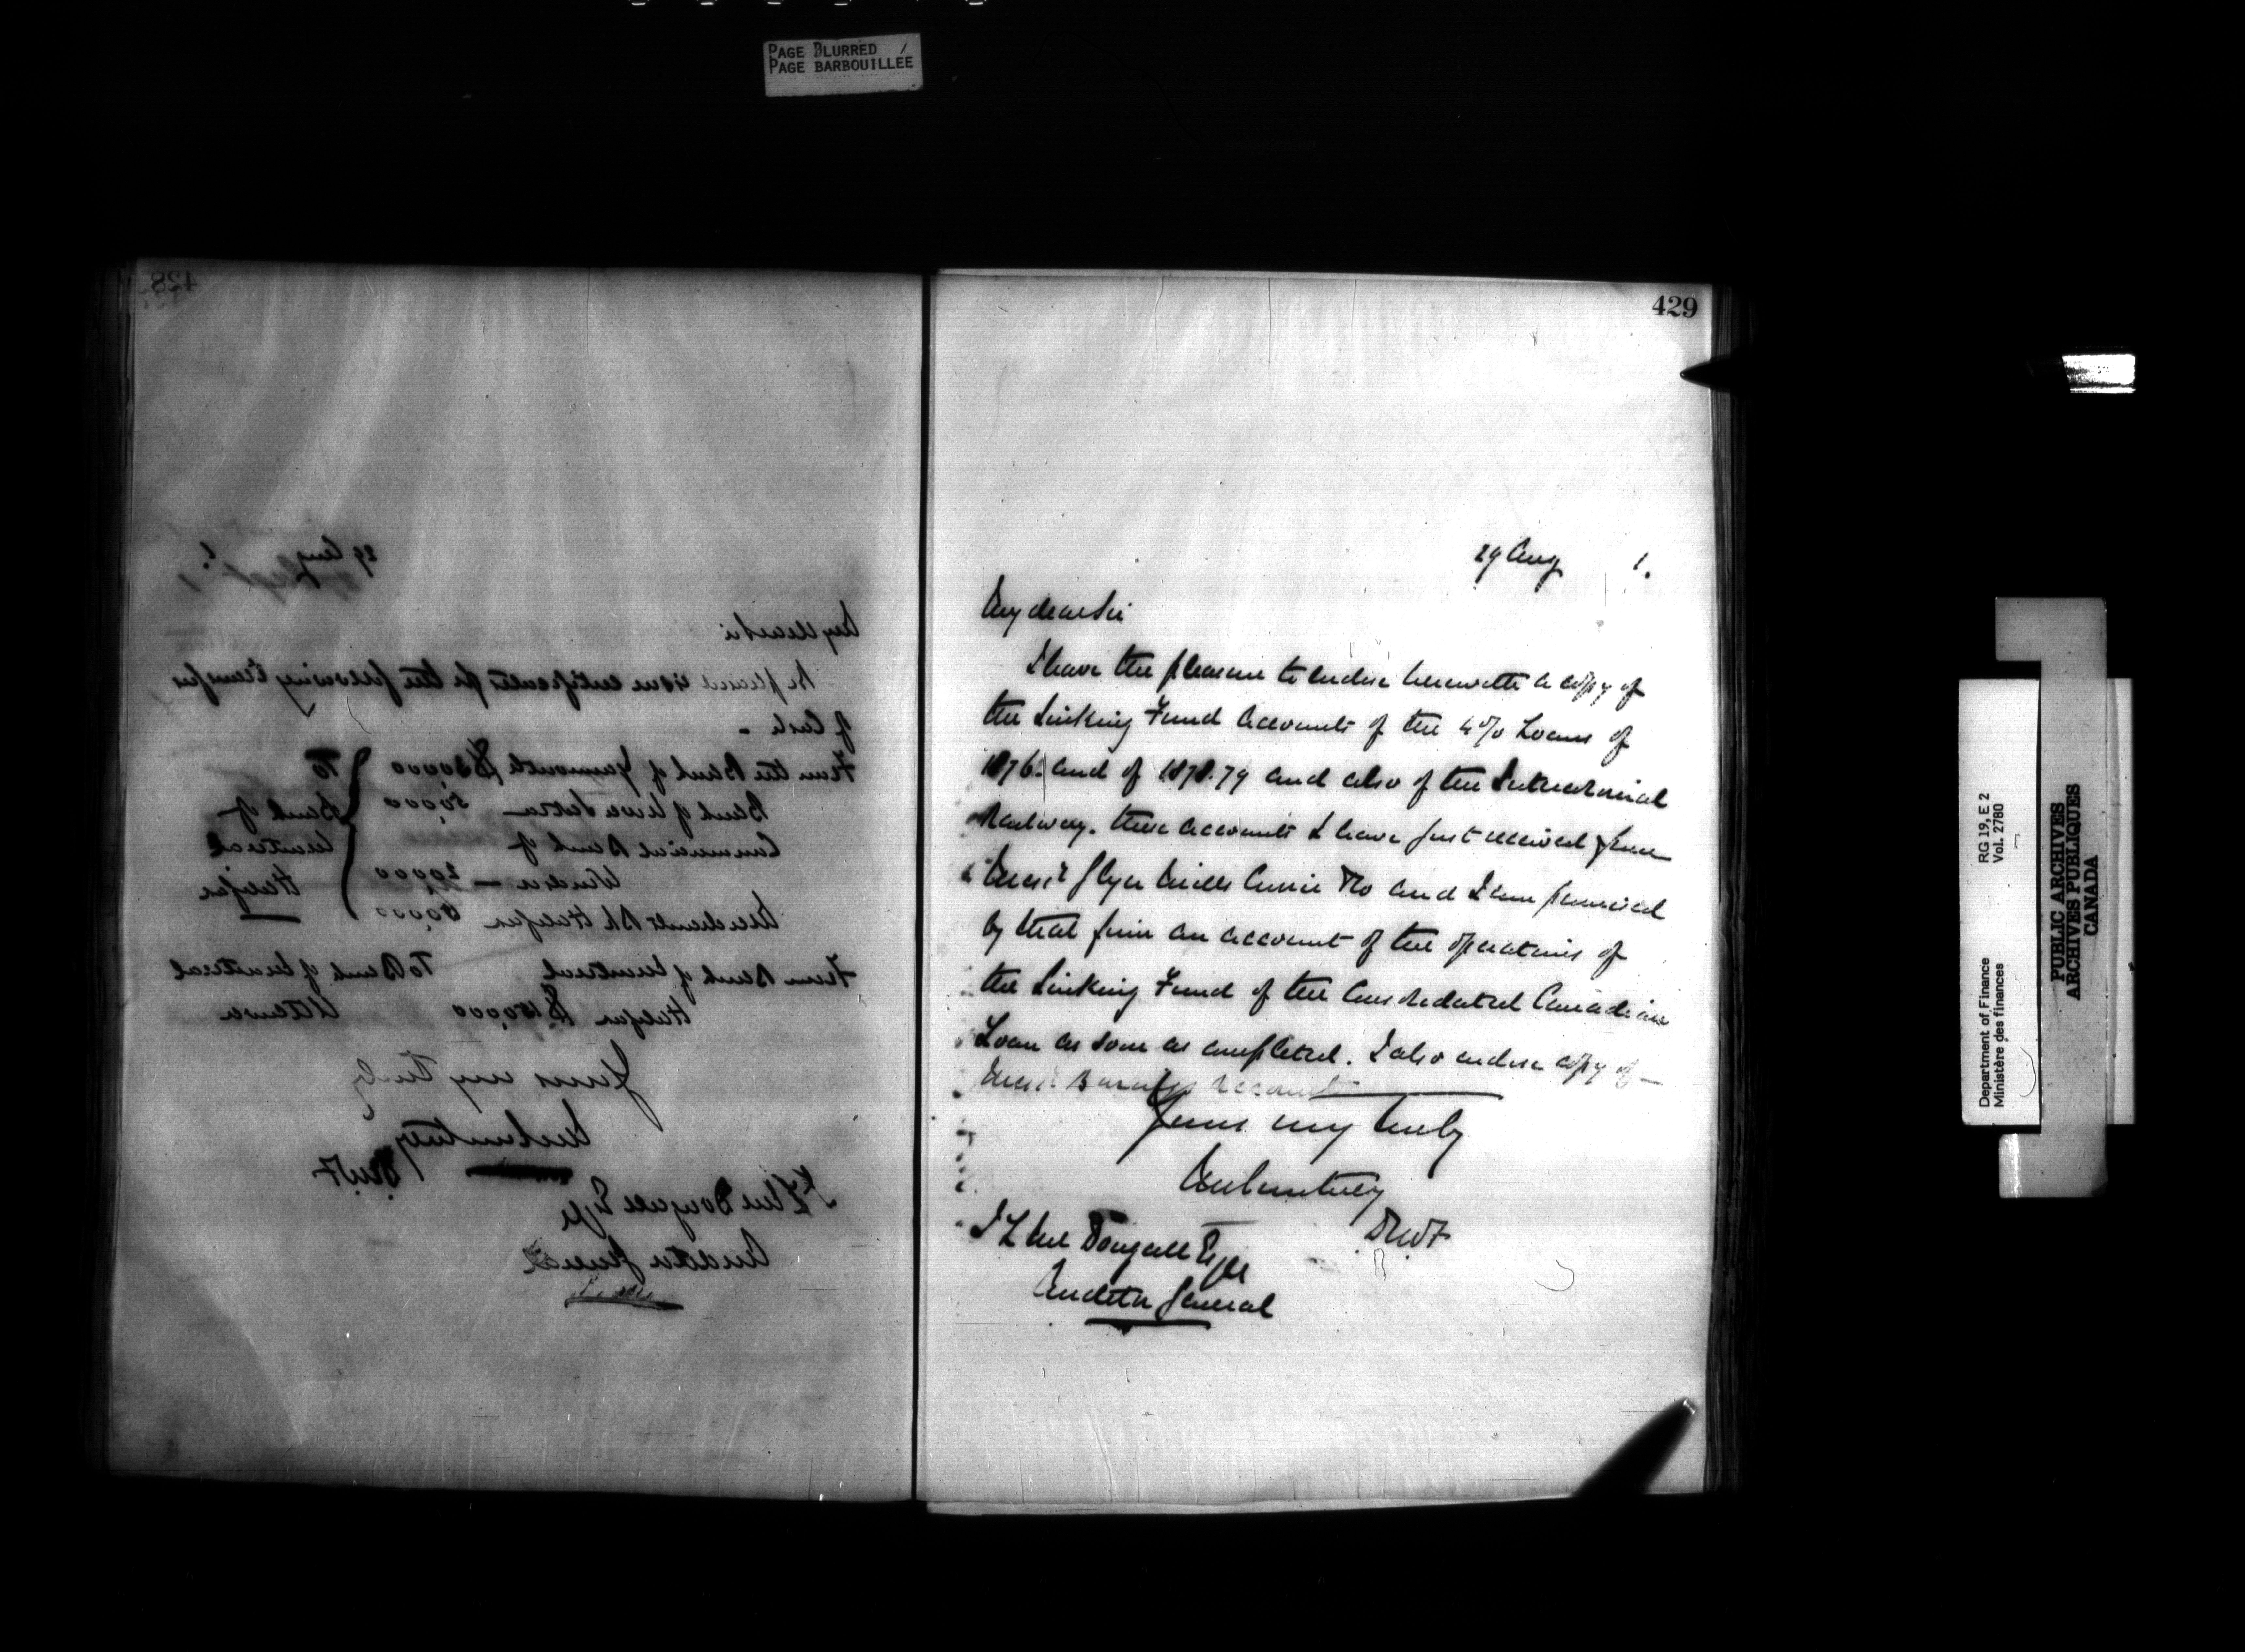 PAGE BLURRED
PAGE BARBOUILLÉE
428
29 Aug 1.
My dear Sir
Be pleased issue certificate for the following transfer
of Cash -
From the Bank of Yarmouth $30,000 To
Bank of Nova Scotia — 50,000 Bank of
Commercial Bank of Montreal
Windsor — 20,000 Halifax
Merchants Bk Halifax 
From Bank of Montreal To Bank of Montreal
Halifax $150,000 Ottawa
Yours very truly
JMCourtney
DMF
J L McDougall Esqre
Auditor General
429
29 Aug 1.
My dear Sir
I have the pleasure to enclose herewith a copy of
the Sinking Fund Accounts of the 4% Loans of
1876. and of 1878.79 and also of the Intercolonial
Railway. these accounts I have just received from
Messrs Glyn Mills Currie & Co and I am promised
by that firm an account of the operations of
the Sinking Fund of the Consolidated Canadian
Loan as soon as completed. I also enclose copy of
Messrs Barings Account
Yours very truly
JMCourtney
DMF
J L McDougall Esqre
Auditor General
Department of Finance RG 19, E 2
Ministère des finances Vol. 2780
PUBLIC ARCHIVES
ARCHIVES PUBLIQUES
CANADA